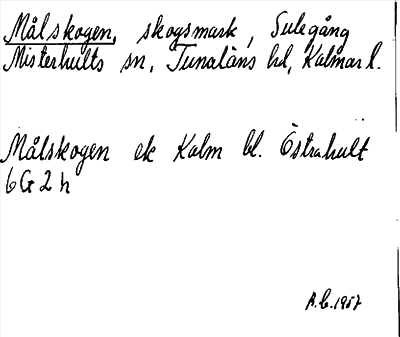 Målskogen, skogsmark, Sulegång
Misterhults sn, Tunaläns hd, Kalmar l.
Målskogen ek Kalm bl. Östrahult
6G2h
A.C. 1957